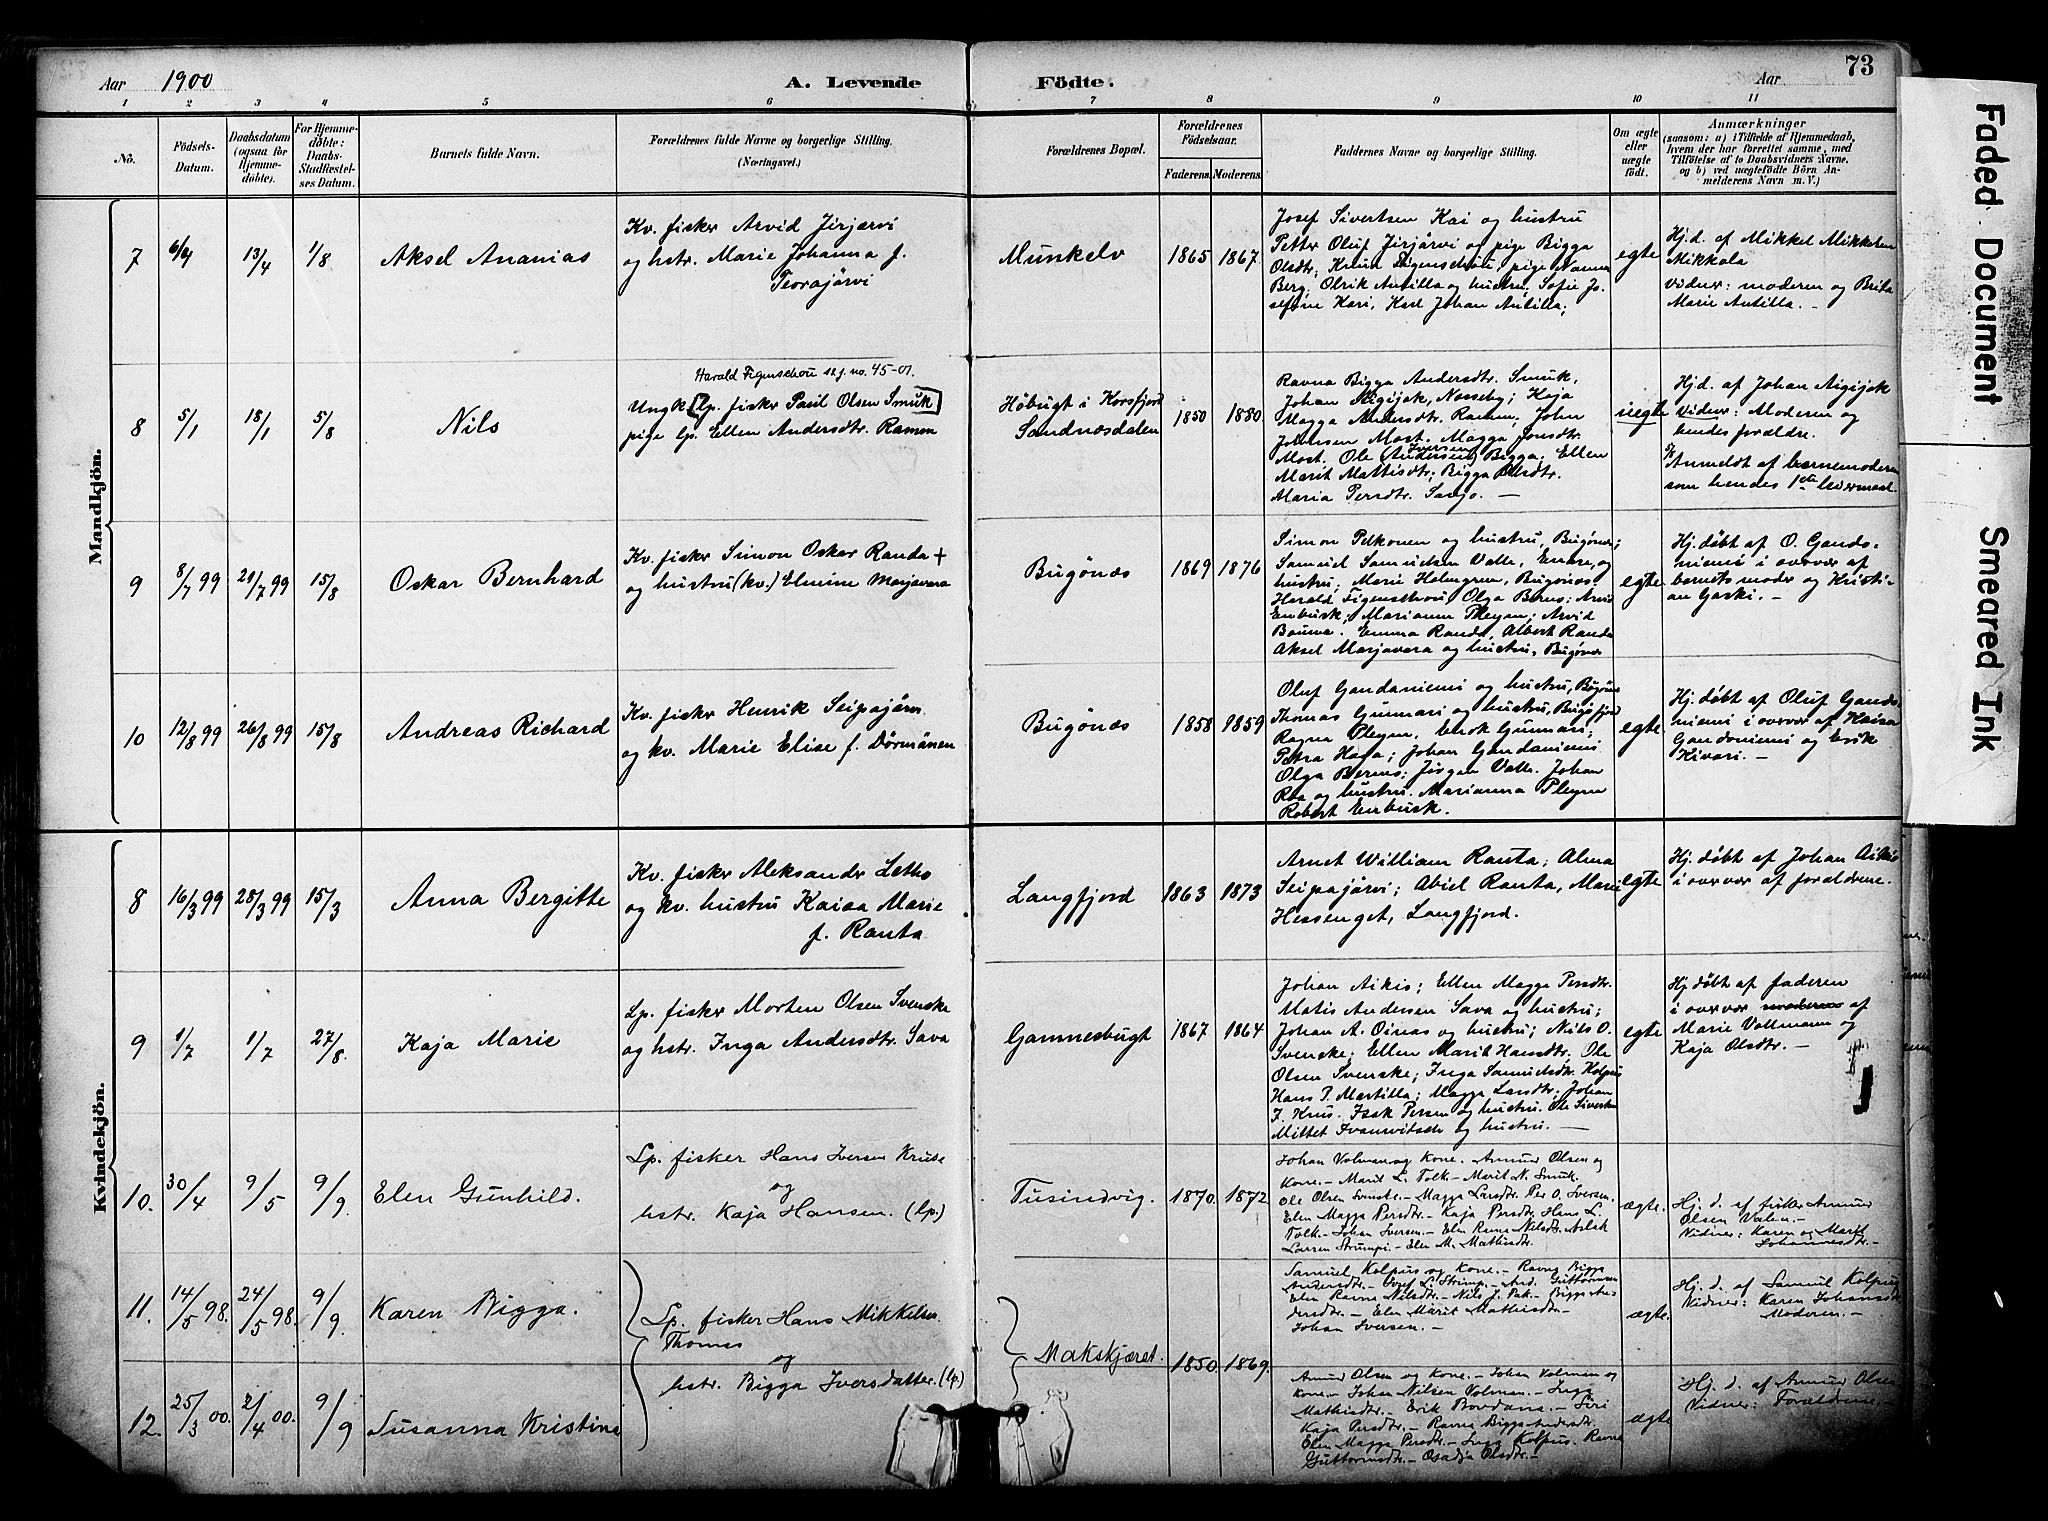 Aar 1900
A. Levende Födte.
Aar
73
1 2 3 4 5 6 7 8 9 10 11
No.
Födsels-
Datum.
Daabsdatum
(ogsaa for
Hjemme-
döbte).
For Hjemme-
döbte:
Daabs-
Stadfæstel-
ses Datum.
Barnets fulde Navn.
Forældrenes fulde Navne og borgerlige Stilling.
(Næringsvei.)
Forældrenes Bopæl.
Forældrenes
Födselsaar.
Faderens. Moderens.
Faddernes Navne og borgerlige Stilling.
Om ægte
eller
uægte
födt.
Anmærkninger
(saasom: a) i Tilfælde af Hjemmedaab,
hvem der har forrettet samme, med
Tilföielse af to Daabsvidners Navne.
og b) ved uægtefödte Börn An-
melderens Navn m. V.)
Mandkjön.
7 6/4 13/4 1/8 Aksel Ananias
Kv. fisker Arvid Jirjærvi
og hstr. Marie Johanna f.
Teorajärvi
Munkelv 1865 1867
Josef Sivertsen Kai og hustru
Petter Oluf Jirjärvi og pige Bigga
Olsdtr; Knud Figenschou, pige Nanna
Berg, Olrik Antilla og hustru; Sofie Jo-
sefine Kari, Karl Johan Antilla;
egte
Hj.d. af Mikkel Mikkelsen
Mikkola
Vidner: moderen og Brita
Marie Antilla. -
8 5/1 18/1 5/8 Nils
Harald Figenschou se j. no. 45-01.
Ungk. [lp. fisker Paul Olsen Smuk]
pige lp. Ellen Andersdtr. Ramen
Høbugt i Korsfjord
Sandnæsdalen
1850 1880
Ravna Bigga Andersdtr. Smuk,
Johan Aigijok, Nesseby; Kaja
Magga Andersdtr. Ramen; John
Johnsen Most. Magga Jonsdtr.
Most. Ole (Andersen) Iversen Bigga; Ellen
Marit Mattisdtr; Bigga Olsdtr.
Maria Persdtr. Sarijo. -
uegte
Hj.d. af Johan Aigijok
Vidner: Moderen og
hendes forældre.
Anmeldt af barnemoderen
som hendes 1ste leiermaal.
9 8/7 99 21/7 99 15/8 Oskar Bernhard
Kv. fisker Simon Oskar Randa +
og hustru (kv.) Elmine Marjavara
Bugønæs 1869 1876
Simon Pelkonen og hustru, Bugønæs;
Samuel Samuelsen Valle, Enare, og
hustru; Marie Holmgren, Bugønæs
Harald Figenschou, Olga Berns; Arvid
Enbusk; Marianna Pleym; Arvid
Bauna. Emma Randa, Albert Randa
Aksel Marjavara og hustru, Bugønæs
egte
Hj. døbt af O. Ganda-
niemi i overvær af
barnets moder og Kristi-
an Gaski. -
10 12/8 99 26/8 99 15/8 Andreas Richard
Kv. fisker Henrik Seipajärvi
og kv. Marie Elise f. Dörmänen
Bugönæs 1858 1859
Oluf Gandaniemi og hustru, Bugönæs
Thomas Gunnari og hustru, Bugöfjord
Ragna Pleym, Enok Gunnari;
Petra Haga; Johan Gandaniemi
Olga Berns; Jörgen Valle. Johan
Roa og hustru. Marianna Pleym
Robert Enbusk.
egte
Hj. døbt af Oluf Ganda-
niemi i overvær af Kaisa
Gandaniemi og Erik
Kivari. -
Kvindekjön.
8 16/3 99 28/3 99 15/3 Anna Bergitte
Kv. fisker Aleksander Letho
og kv. hustru Kaisa Marie
f. Ranta
Langfjord 1863 1873
Arnet William Ranta; Alma
Seipajärvi; Abiel Ranta, Marie
Hessenget, Langfjord.
egte
Hj. døbt af Johan Aikio
i overvær af forældrene.
9 1/7 1/7 27/8. Kaja Marie
Lp. fisker Morten Olsen Svenske
og hstr. Inga Andersdtr. Sava
Gamnesbugt 1867 1864
Johan Aikis; Ellen Magga Persdtr.
Matis Andersen Sava og hustru;
Johan A. Oinas og hustru; Nils O.
Svenske; Ellen Marit Hansdtr. Ole
Olsen Svenske; Inga Samuelsdtr. Kolpus
Hans P. Martilla; Magga Larsdtr; Johan
J. Krus. Isak Persen og hustru. Ole Sivertsen
Mittet Ivanvitsch og hustru. -
egte
Hj. døbt af faderen
i overvær moderens af
Marie Vollmann og
Kaja Olsdtr. -
10. 30/4 9/5 9/9. Elen Gunhild.
Lp. fisker Hans Iversen Kruse
og
hstr. Kaja Hansen. (lp.)
Tusindvig. 1870. 1872.
Johan Volman og Kone. Amund Olsen og
Kone. - Marit L. Tolk. - Marit N. Smuk.
Ole Olsen Svenske. - Magga Larsdtr. Per O. Iversen.
Elen Magga Persdtr. - Kaja Persdtr. Hans L.
Tolk. - Johan Iversen. - Elen Ravna Nilsdtr. Aslak
Larsen Strumpi. - Elen M. Mathisdtr.
ægte.
Hj. d. af fisker Amund
Olsen Valen. -
Vidner: Karen og Marit
Johannesdtr. -
11. 14/5 98. 24/5 98. 9/9. Karen Bigga.
Lp. fisker Hans Mikkelsen
Thomas
og
hstr. Bigga Iversdatter. (lp.)
Makskjæret. 1850. 1869.
Samuel Kolpus og Kone. - Ravna Bigga
Andersdtr. Josef L. Strump. - And. Guttormsen
Elen Ravna Nilsdtr. - Nils J. Pak. - Bigga An-
dersdtr. - Elen Marit Mathisdtr. -
Johan Iversen. -
ægte.
Hj. d. af Samuel Kolpus
Vidner: Karen Johansdtr
Moderen. -
12. 25/3 00. 2/4 00. 9/9 Susanna Kristine
Amund Olsen og Kone. - Johan Volman og
Kone. - Johan Nilsen Volman. - Inga
Mathisdtr. - Erik Bordana. - Siri
Kaja Persdtr. - Ravna Bigga Andersdtr.
Elen Magga Persdtr. - Inga Kolpus. Ravna
Guttormsdtr. - Osadja Olsdtr. -
ægte
Hj. d. af Amund Olsen
Vidner: Forældrene. -
Faded Document
Smeared Ink